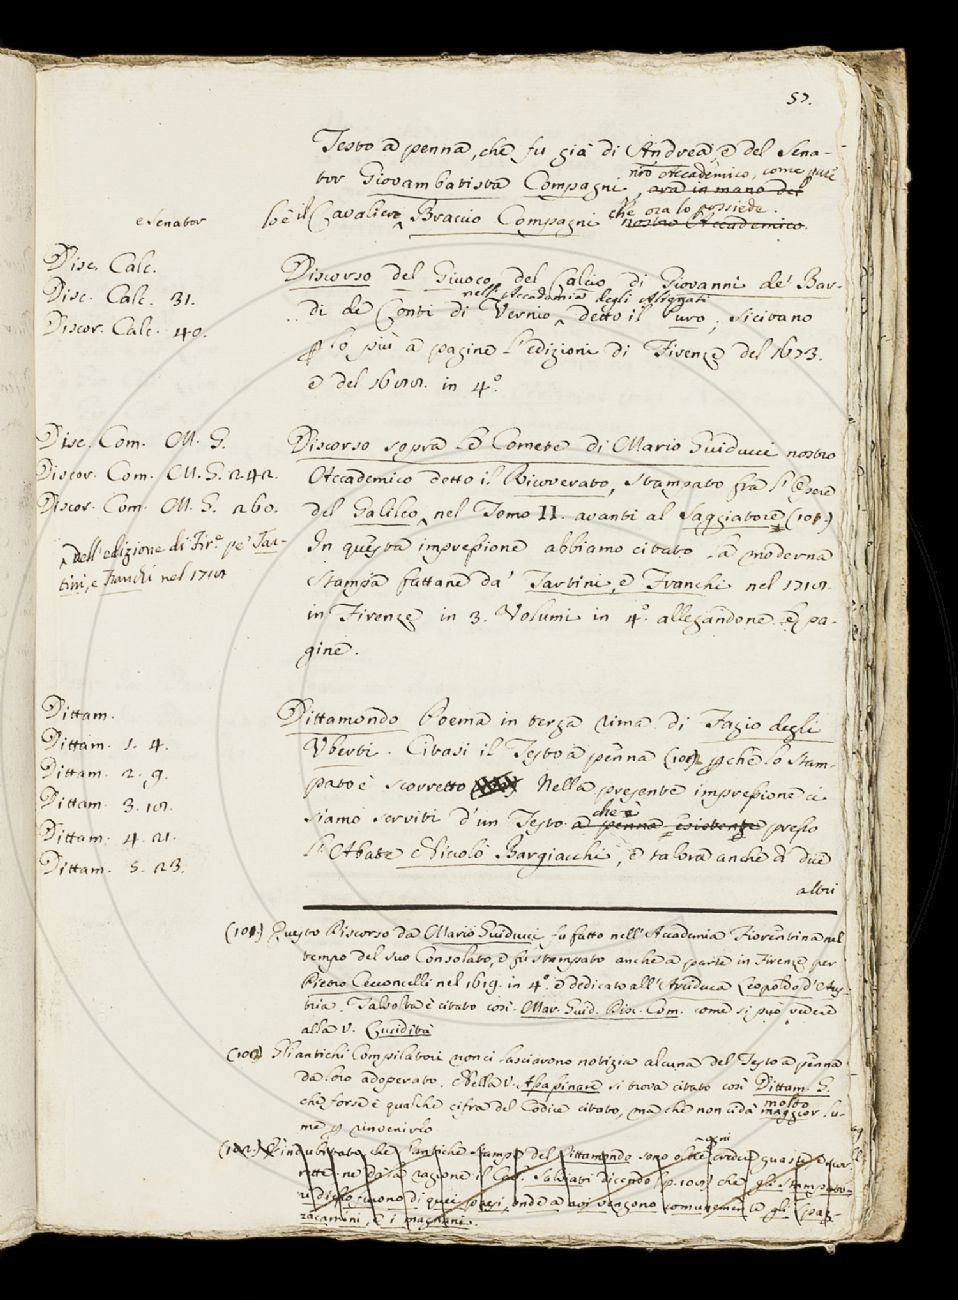 57.
Testo a penna, che fu già di Andrea, e del Sena-
tor Giovambatista Compagni, ora in mano del
nro Accademico, come pure
e Senator
il Cavaliere Braccio Compagni nostro Accademico.
che ora lo possiede.
Disc. Calc.
Disc. Calc. 31.
Discor. Calc. 40.
Discorso del Giuoco del Calcio di Giovanni de' Bar-
nell' Accademia degli Assetati
di de' Conti di Vernio detto il Puro; si citano
più a pagine l'edizioni di Firenze del 1673.
e del in 4.º
Disc. Com. M. G.
Discor. Com. M. G. 242.
Discor. Com. M. G. 260.
dell'edizione di Fir.e pe' Tar-
tini, e Franchi nel 1718
Discorso sopra le Comete di Mario Guiducci nostro
Accademico detto il Ricoverato, stampato fra l'Opere
del Galileo nel Tomo II. avanti al Saggiatore (101)
In questa impressione abbiamo citato la moderna
stampa fattane da' Tartini, e Franchi nel 1718.
in Firenze in 3. Volumi in 4.º allegandone le pa-
gine.
Dittam.
Dittam. 1. 4.
Dittam. 2. 9.
Dittam. 3.
Dittam. 4. 21.
Dittam. 5. 23.
Dittamondo Poema in terza rima di Fazio degli
Uberti. Citasi il Testo a penna perchè lo stam-
pato è scorretto Nella presente impressione ci
che è
siamo serviti d'un Testo a penna esistente presso
l'Abate Niccolò Bargiacchi, e talora anche di due
altri
(101) Questo Discorso da Mario Guiducci fu fatto nell'Accademia Fiorentina nel
tempo del suo Consolato, e fu stampato anche a parte in Firenze per
Pietro Cecconcelli nel 1619. in 4.º e dedicato all'Arciduca Leopoldo d'Aus-
tria. Talvolta è citato così Mar. Guid. Disc. Com. come si può vedere
alla V. Lucidità
Gli antichi Compilatori non ci lasciarono notizia alcuna del Testo a penna
da loro adoperato. Nella V. Assapinare si trova citato così Dittam. G.
che forse è qualche cifra del Codice citato, ma che non ci dà maggior lu-
molto
me per rinvenirlo
(102) È indubitato che l'antiche stampe del Dittamondo sono oltre
ogni
credere guaste e scor-
rette: ne dà la ragione il Cav. Salviati dicendo che gli stampato-
ri di esso furono di quei paesi, onde a noi vengono comunemente gli spaz-
zacamini, e i magnani.